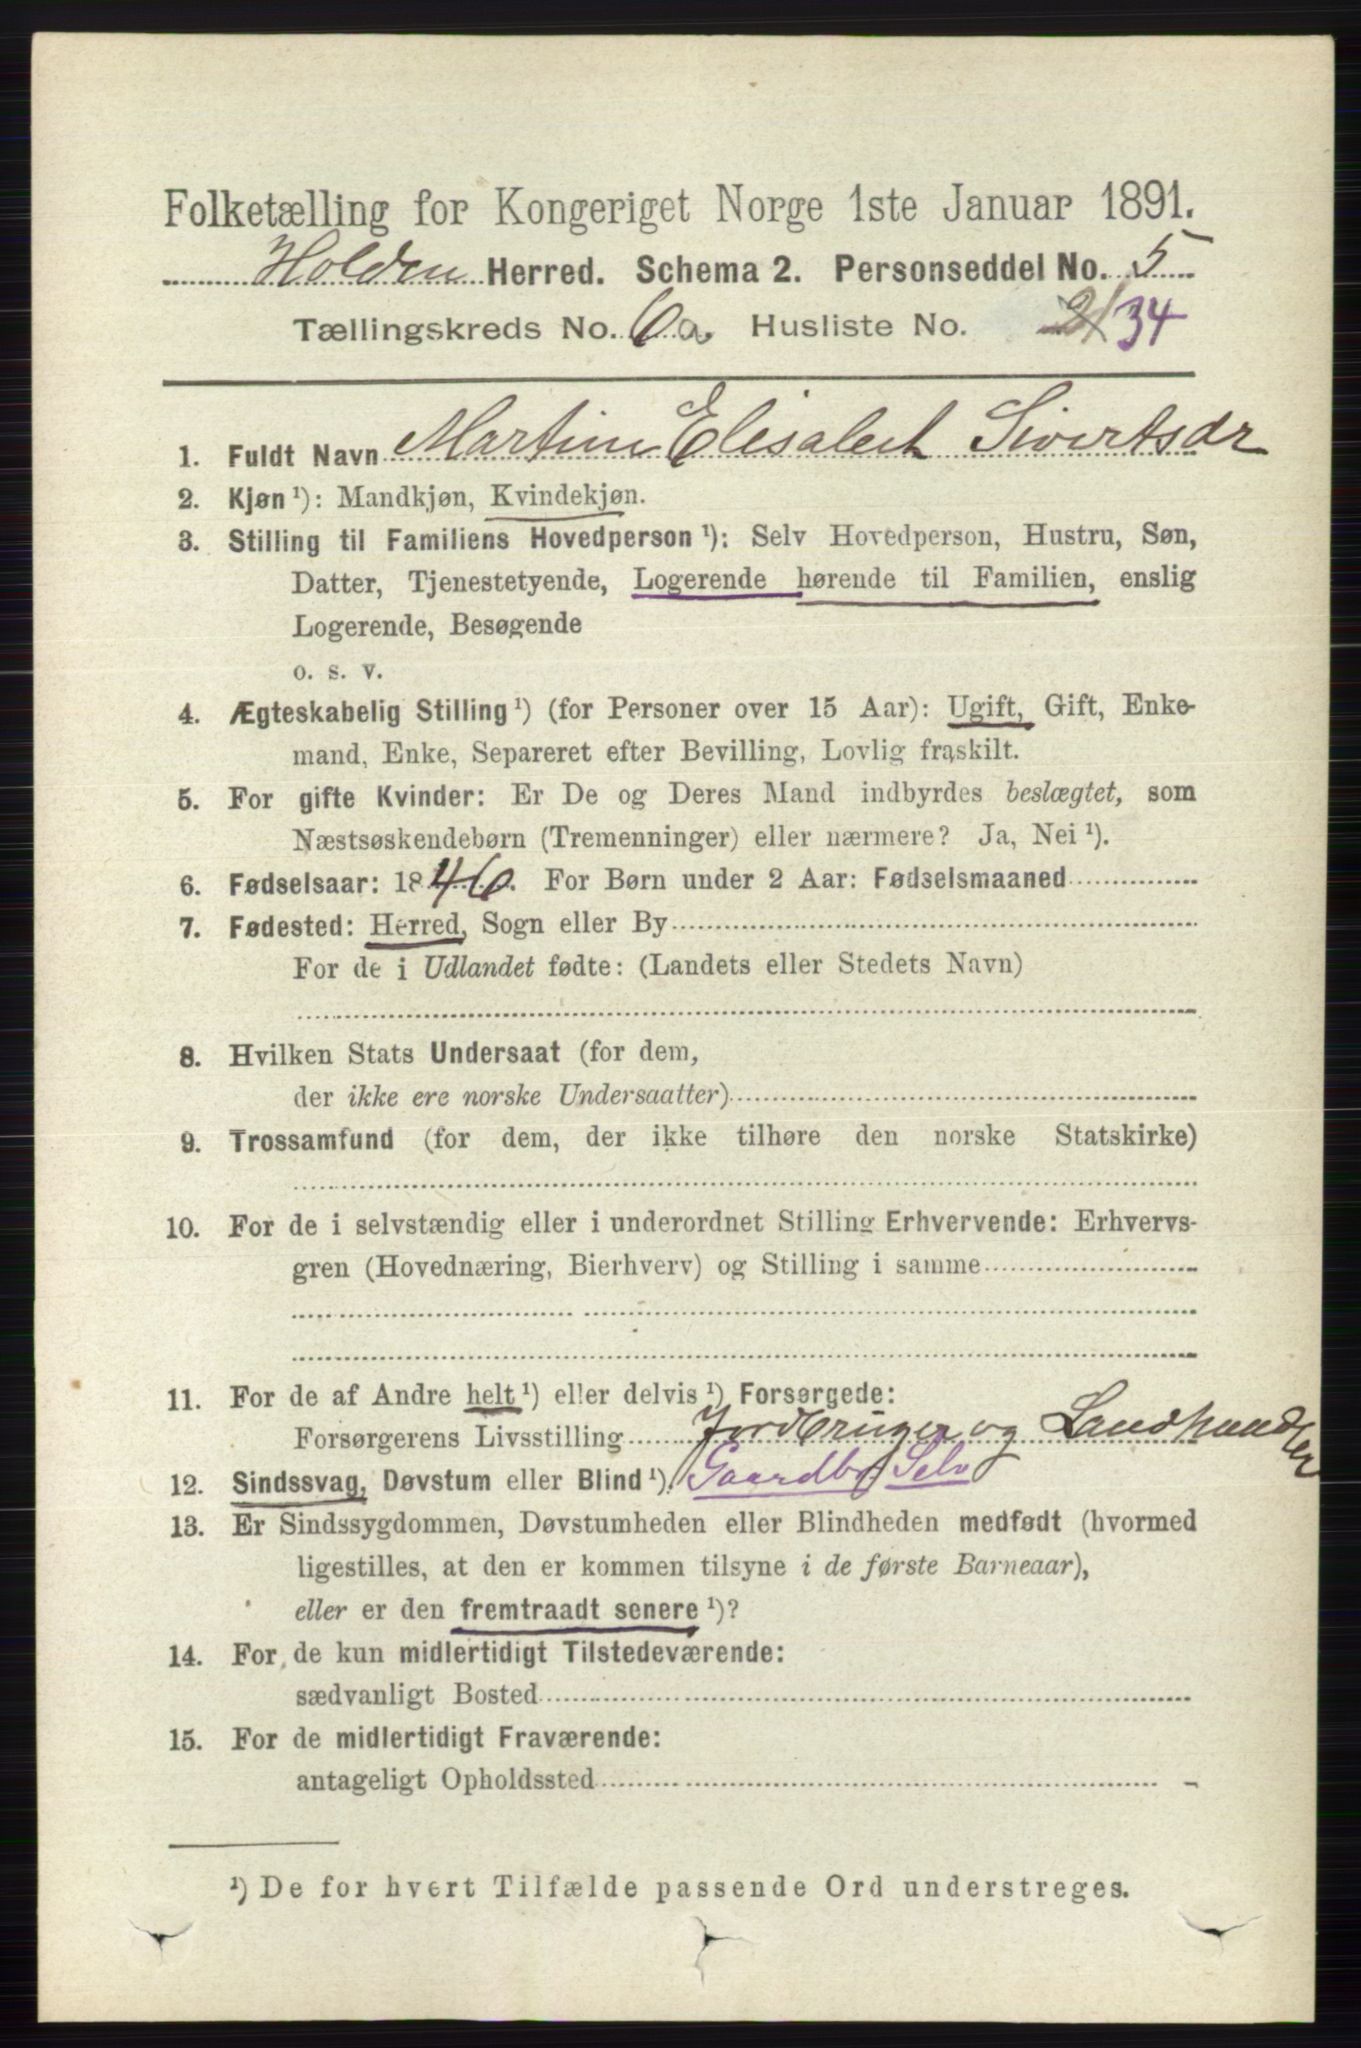 Folketælling for Kongeriget Norge 1ste Januar 1891.
Holden Herred. Schema 2. Personseddel No. 5
Tællingskreds No. 6a. Husliste No. 34
1. Fuldt Navn Martine Elisabeth Sivertsdr
2. Kjøn ¹): Mandkjøn, Kvindekjøn.
3. Stilling til Familiens Hovedperson ¹): Selv Hovedperson, Hustru, Søn,
Datter, Tjenestetyende, Logerende hørende til Familien, enslig
Logerende, Besøgende
o. s. v.
4. Ægteskabelig Stilling ¹) (for Personer over 15 Aar): Ugift, Gift, Enke-
mand, Enke, Separeret efter Bevilling, Lovlig fraskilt.
5. For gifte Kvinder: Er De og Deres Mand indbyrdes beslægtet, som
Næstsøskendebørn (Tremenninger) eller nærmere? Ja, Nei ¹).
6. Fødselsaar: 1846. For Børn under 2 Aar: Fødselsmaaned
7. Fødested: Herred, Sogn eller By
For de i Udlandet fødte: (Landets eller Stedets Navn)
8. Hvilken Stats Undersaat (for dem,
der ikke ere norske Undersaatter)
9. Trossamfund (for dem, der ikke tilhøre den norske Statskirke)
10. For de i selvstændig eller i underordnet Stilling Erhvervende: Erhvervs-
gren (Hovednæring, Bierhverv) og Stilling i samme
11. For de af Andre helt ¹) eller delvis ¹) Forsørgede:
Forsørgerens Livsstilling Jordbruger og Landhandler
12. Sindssvag, Døvstum eller Blind ¹). Gaardbr Selv
13. Er Sindssygdommen, Døvstumheden eller Blindheden medfødt (hvormed
ligestilles, at den er kommen tilsyne i de første Barneaar),
eller er den fremtraadt senere ¹)?
14. For de kun midlertidigt Tilstedeværende:
sædvanligt Bosted
15. For de midlertidigt Fraværende:
antageligt Opholdssted
¹) De for hvert Tilfælde passende Ord understreges.